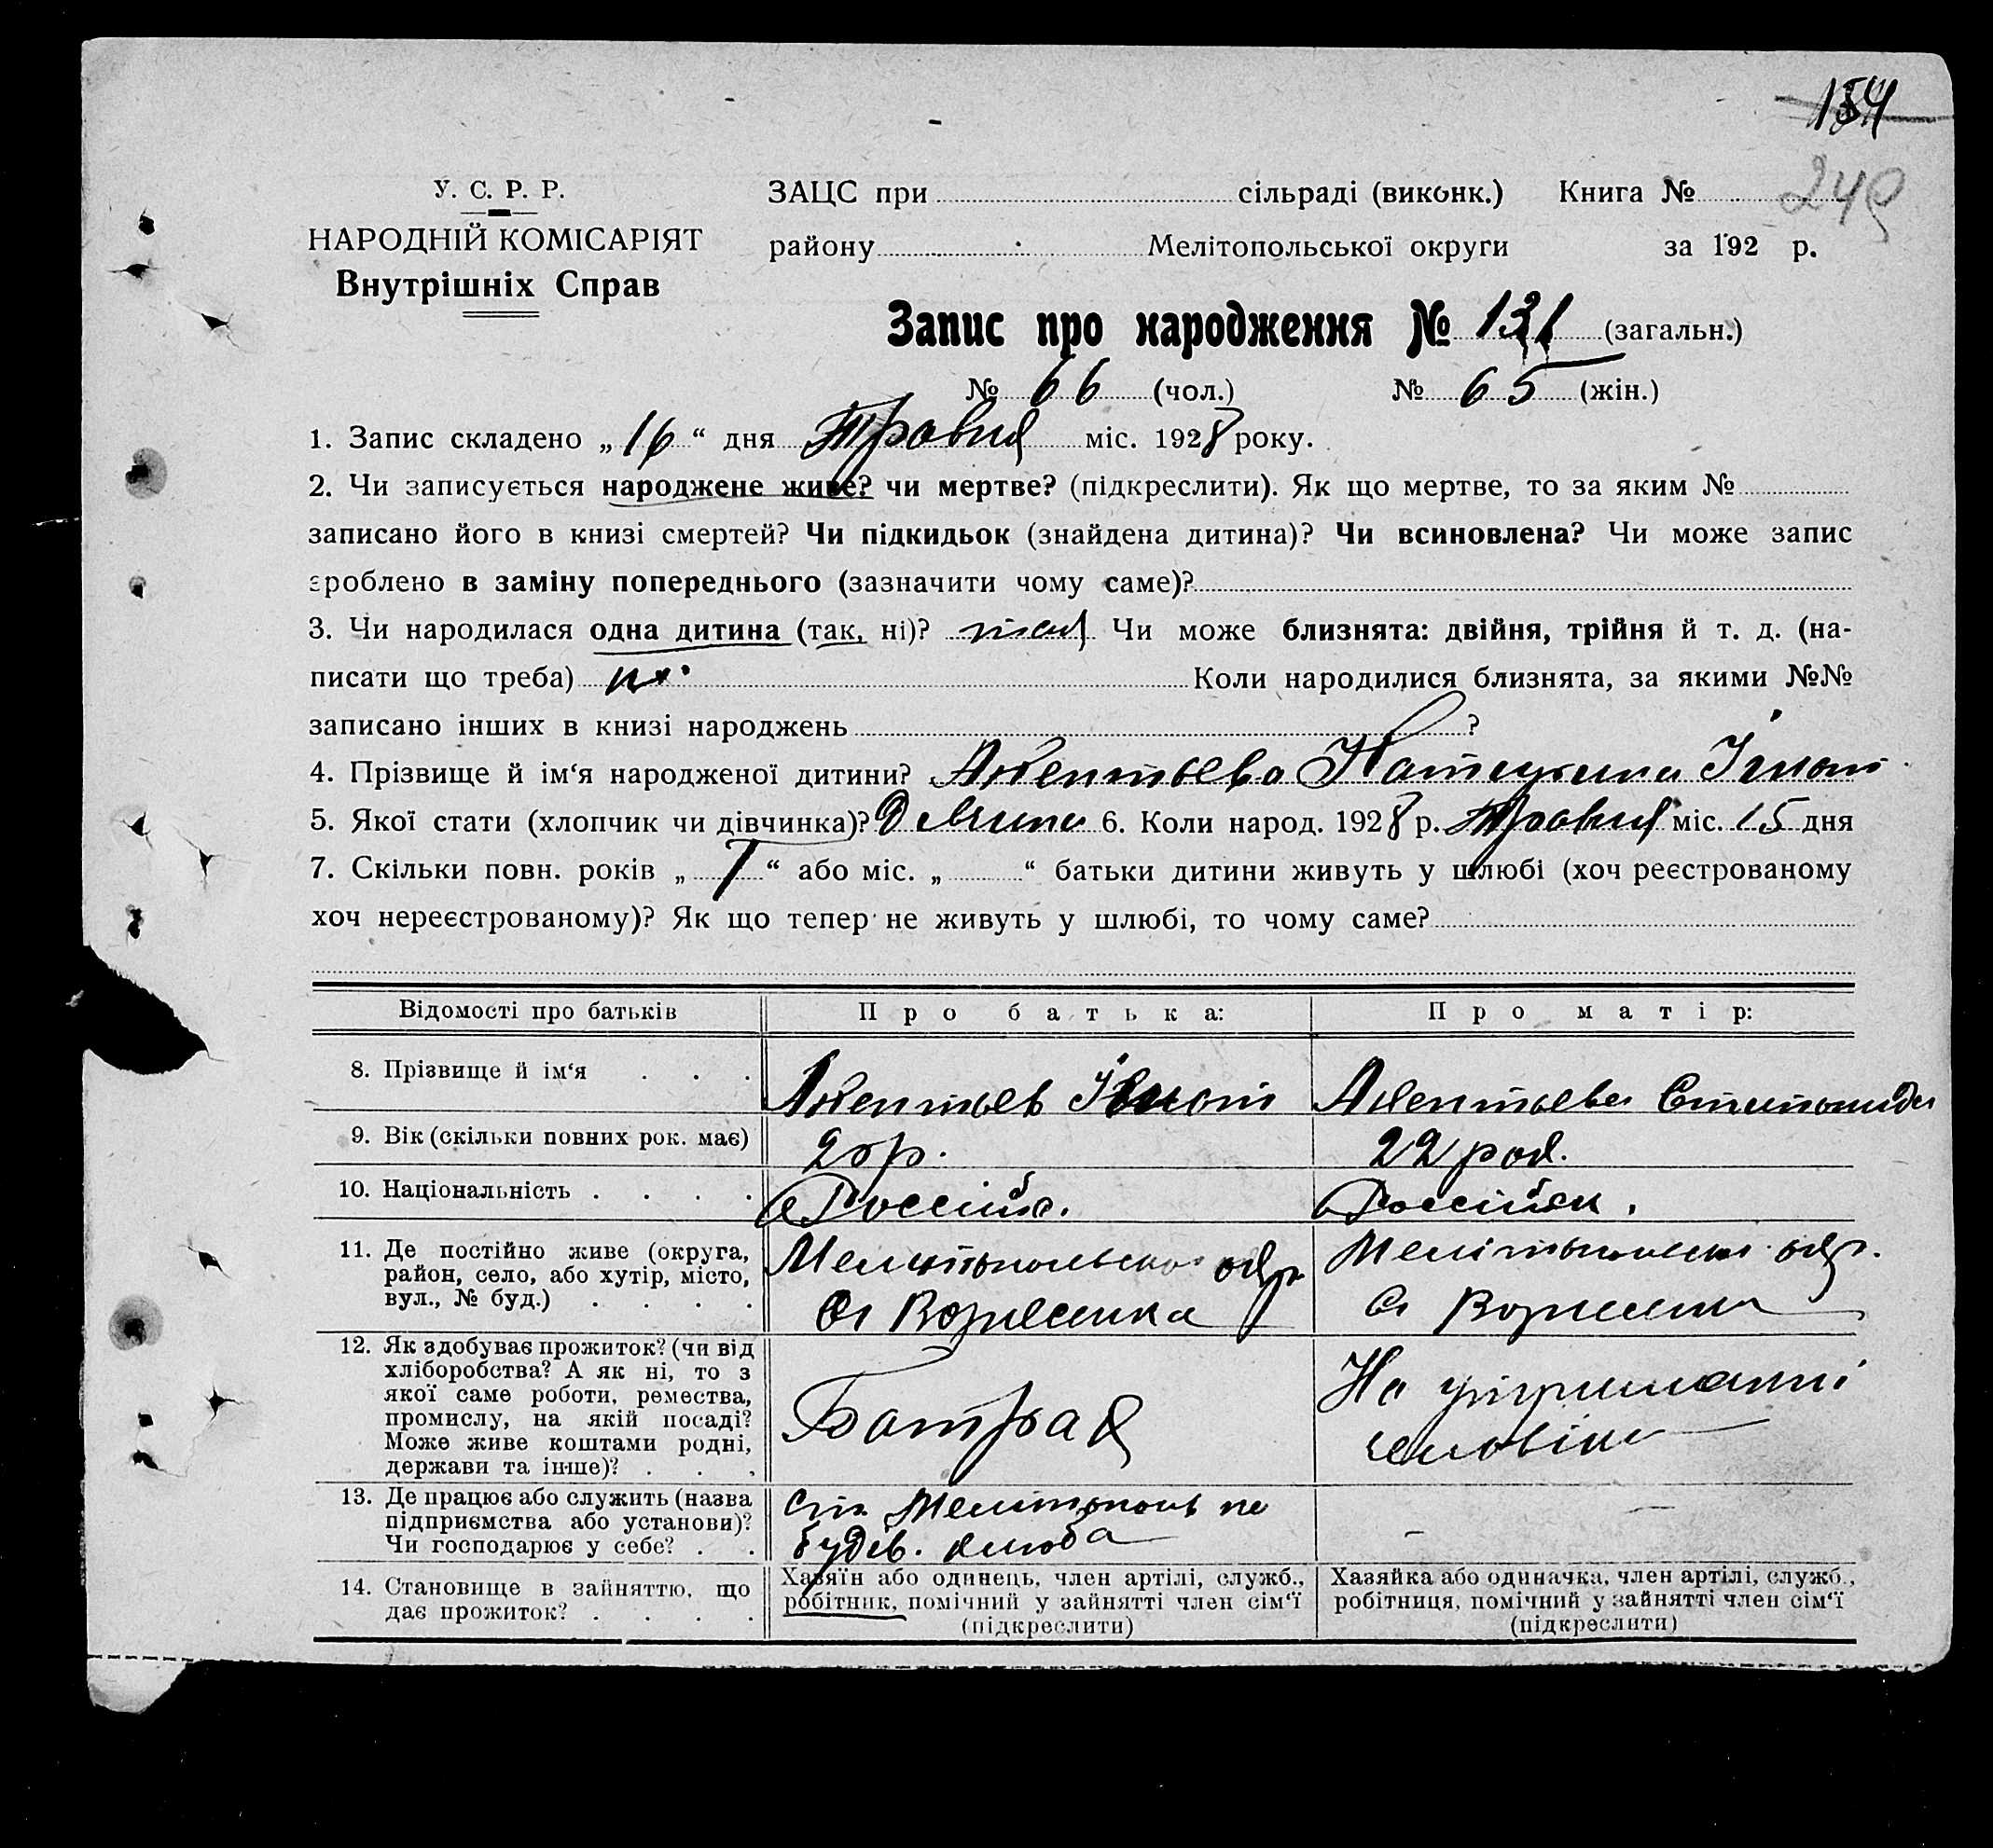 154
249
У. С. Р. Р.
НАРОДНІЙ КОМІСАРІЯТ
Внутрішніх Справ
ЗАЦС при сільраді (виконк.) Книга №
району Мелітопольської округи за 192 р.
Запис про народження № 131 (загальн.)
№ 66 (чол.) № 65 (жін.)
1. Запис складено „ 16 “ дня Травня міс. 1928 року.
2. Чи записується народжене живе? чи мертве? (підкреслити). Як що мертве, то за яким №
записано його в книзі смертей? Чи підкидьок (знайдена дитина)? Чи всиновлена? Чи може запис
зроблено в заміну попереднього (зазначити чому саме)?
3. Чи народилася одна дитина (так, ні)? так Чи може близнята: двійня, трійня й т. д. (на-
писати що треба) ні Коли народилися близнята, за якими №№
записано інших в книзі народжень ?
4. Прізвище й ім‘я народженої дитини?
5. Якої стати (хлопчик чи дівчинка)? 6. Коли народ. 1928 р. Травня міс. 15 дня
7. Скільки повн. років „ 1 “ або міс. „ “ батьки дитини живуть у шлюбі (хоч реєстрованому
хоч нереєстрованому)? Як що тепер не живуть у шлюбі, то чому саме?
Відомості про батьків Про батька: Про матір:
8. Прізвище й ім‘я . . .
9. Вік (скільки повних рок. має) р. 22 рок.
10. Національність . . . .
11. Де постійно живе (округа,
район, село, або хутір, місто,
вул., № буд.) . . . .
Мелітопольска окр.
С. Вознесенка
Мелітопольска окр.
С. Вознесенка
12. Як здобуває прожиток? (чи від
хліборобства? А як ні, то з
якої саме роботи, ремества,
промислу, на якій посаді?
Може живе коштами родні,
держави та інше)? . . .
Батрак
На утриманні
чоловіка
13. Де працює або служить (назва
підприємства або установи)?
Чи господарює у себе? . .
ст. Мелітополь на
будів. клюба
— —
14. Становище в зайняттю, що
дає прожиток? . . . .
Хазяїн або одинець, член артілі, служб.,
робітник, помічний у зайнятті член сім‘ї
(підкреслити)
Хазяйка або одиначка, член артілі, служб.,
робітниця, помічний у зайнятті член сім‘ї
(підкреслити)